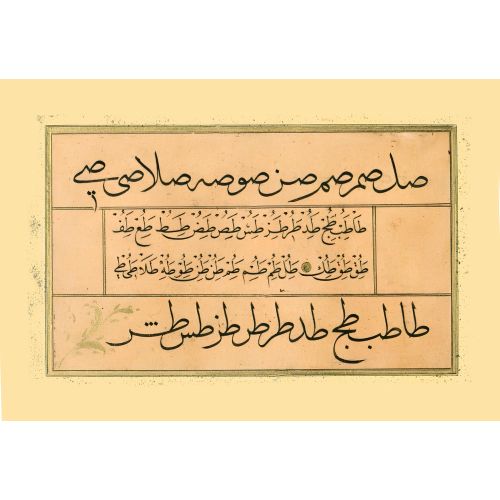 صل صم صم صن صو صه صلا صى صے
طا طب طج طد طر طز طس طص طض طط طع طف
طق طق طك طل طم طم طن طن طو طه طلا طى طے
طا طب طج طد طر طر طز طس طش